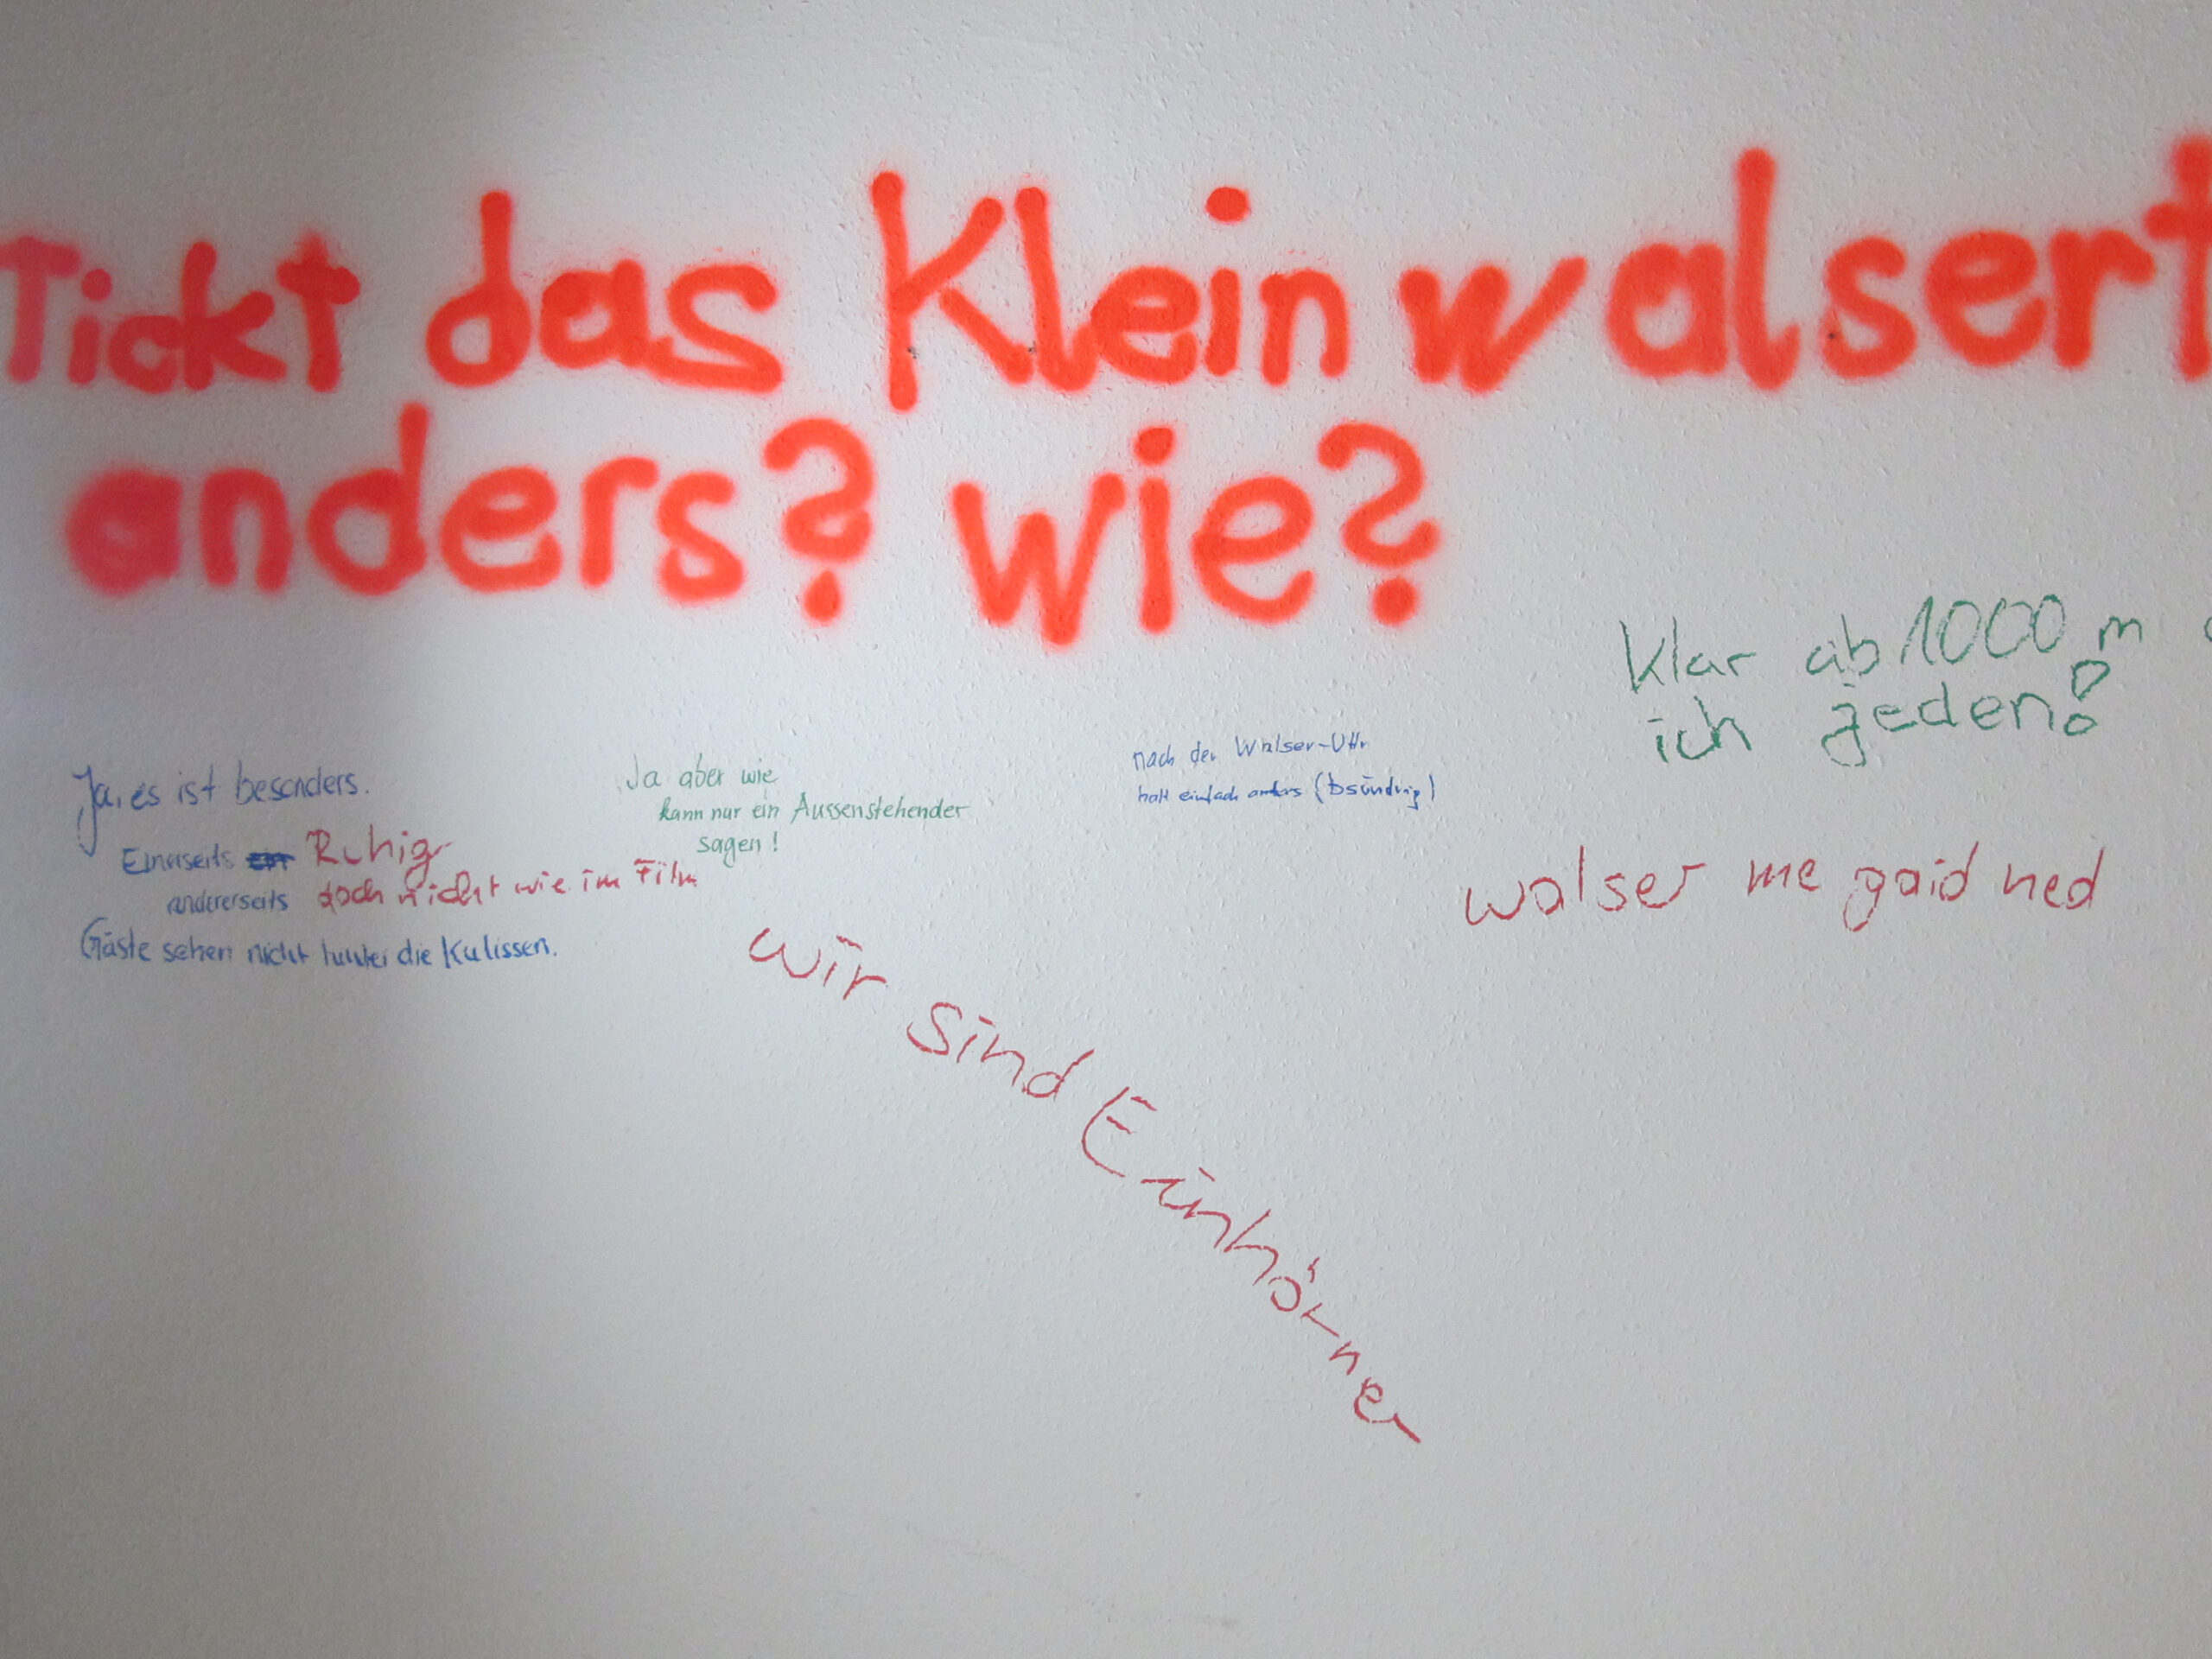 Tickt das Kleinwalsert
anders? wie?
Klar ab 1000 m
ich jeden!
Ja, es ist besonders.
Einerseits ein Ruhig
andererseits doch nicht wie im Film
Gäste sehen nicht hinter die Kulissen.
Ja aber wie
kann nur ein Aussenstehender
sagen!
nach der Walser-Uhr
halt einfach anders (bsündrig)
walser me gaid ned
wir sind Einhörner